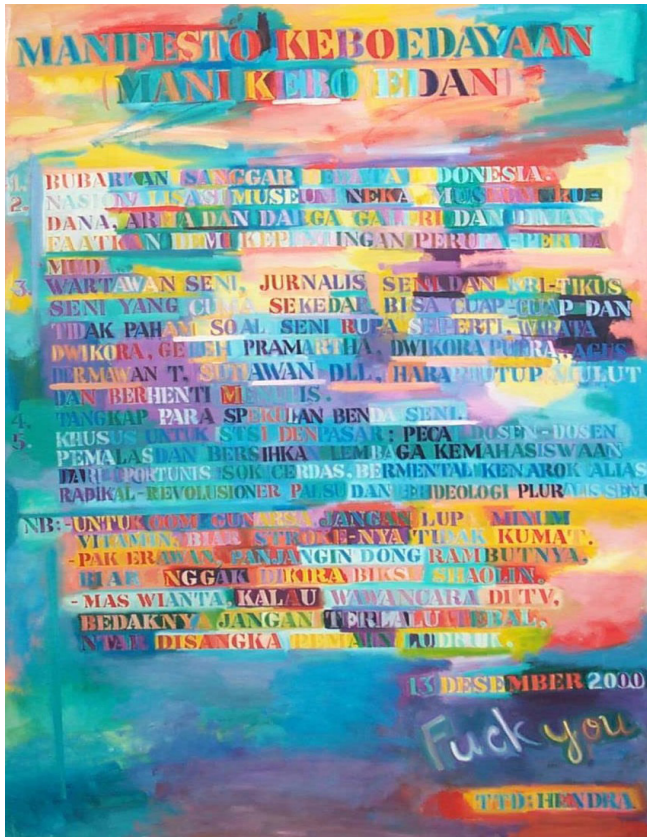 MANIFESTO KEBOEDAYAAN
(MANI KEBO EDAN)
1. BUBARKAN SANGGAR INDONESIA.
2. NASIONALISASI MUSEUM NEKA, MUSEUM
DANA, ARMA DAN DARGA GALERI DAN DIMAN-
FAATKAN DEMI KEPENTINGAN PERUPA-PERUPA
MUDA
3. WARTAWAN SENI, JURNALIS SENI DAN KRI-TIKUS
SENI YANG CUMA SEKEDAR BISA CUAP-CUAP DAN
TIDAK PAHAM SOAL SENI RUPA SEPERTI, WIRATA
DWIKORA, GEDEH PRAMARTHA, DWIKORA PUTRA, AGUS
DERMAWAN T, SUTIAWAN DLL, HARAP TUTUP MULUT
DAN BERHENTI MENULIS.
4. TANGKAP PARA SPEKULAN BENDA SENI.
5. KHUSUS UNTUK DENPASAR: PECAT DOSEN-DOSEN
PEMALAS DAN BERSIHKAN LEMBAGA KEMAHASISWAAN
DARI OPORTUNIS SOK CERDAS, BERMENTAL KENAROK ALIAS
RADIKAL-REVOLUSIONER PALSU DAN BERIDEOLOGI PLURALIS SEMU
NB:-UNTUK OOM GUNARSA JANGAN LUPA MINUM
VITAMIN, BIAR STROKE-NYA TIDAK KUMAT.
-PAK ERAWAN, PANJANGIN DONG RAMBUTNYA,
BIAR NGGAK DIKIRA BIKSU SHAOLIN.
-MAS WIANTA, KALAU WAWANCARA DI TV,
BEDAKNYA JANGAN TERLALU TEBAL,
NTAR DISANGKA PEMAIN LUDRUK.
13 DESEMBER 2000
Fuck you
TTD: HENDRA